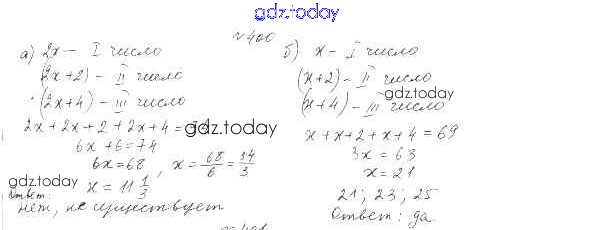 gdz.today
№ 400
а) 2x – I число
(2x+2) – II число
(2x+4) – III число
2x + 2x + 2 + 2x + 4 = 74
gdz.today
6x + 6 = 74
6x = 68, x = 68/6 = 34/3
gdz.today
x = 11 1/3
Ответ:
нет, не существует
б) x – I число
(x+2) – II число
gdz.today
(x+4) – III число
x + x + 2 + x + 4 = 69
3x = 63
x = 21
21; 23; 25
Ответ: да.
№ 401